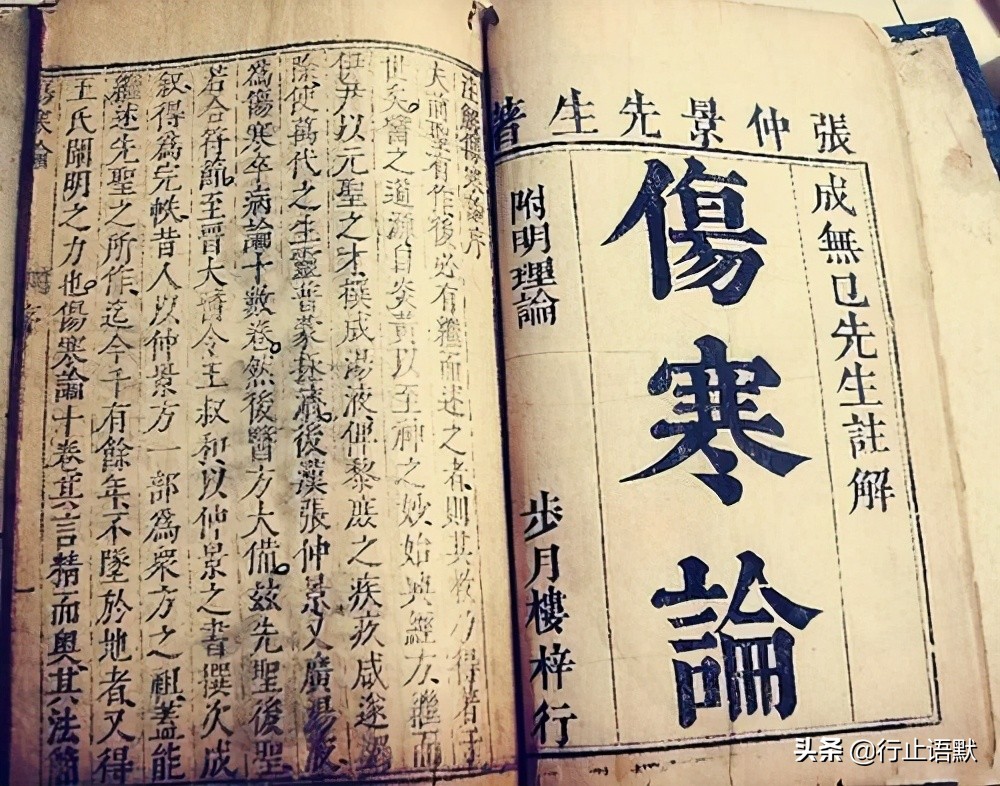 張仲景先生著
成無己先生註解
傷寒論
附明理論
步月樓梓行
注解傷寒論序
夫前聖有作後必有繼而述之者則其教乃得著于
世矣醫之道源自炎黃以至神之妙始興經方繼而
伊尹以元聖之才撰成湯液俾黎庶之疾疢咸遂蠲
除使萬代之生靈普蒙拯濟後漢張仲景又廣湯液
為傷寒卒病論十數卷然後醫方大備茲先聖後聖
若合符節至晉大醫令王叔和以仲景之書撰次成
叙得為完帙昔人以仲景方一部為衆方之祖蓋能
繼述先聖之所作迄今千有餘年不墜於地者又得
王氏闡明之力也傷寒論十卷其言精而奧其法簡
傷寒論
序
头条 @行止语默